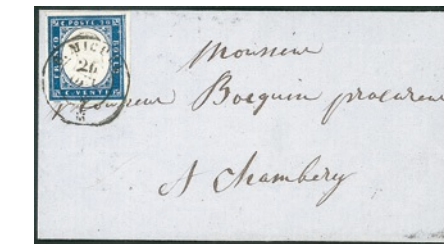 C. POSTE 20
BOLLO
C. VENTI
26
Monsieur
Monsieur Bocquin procureur
A Chambéry